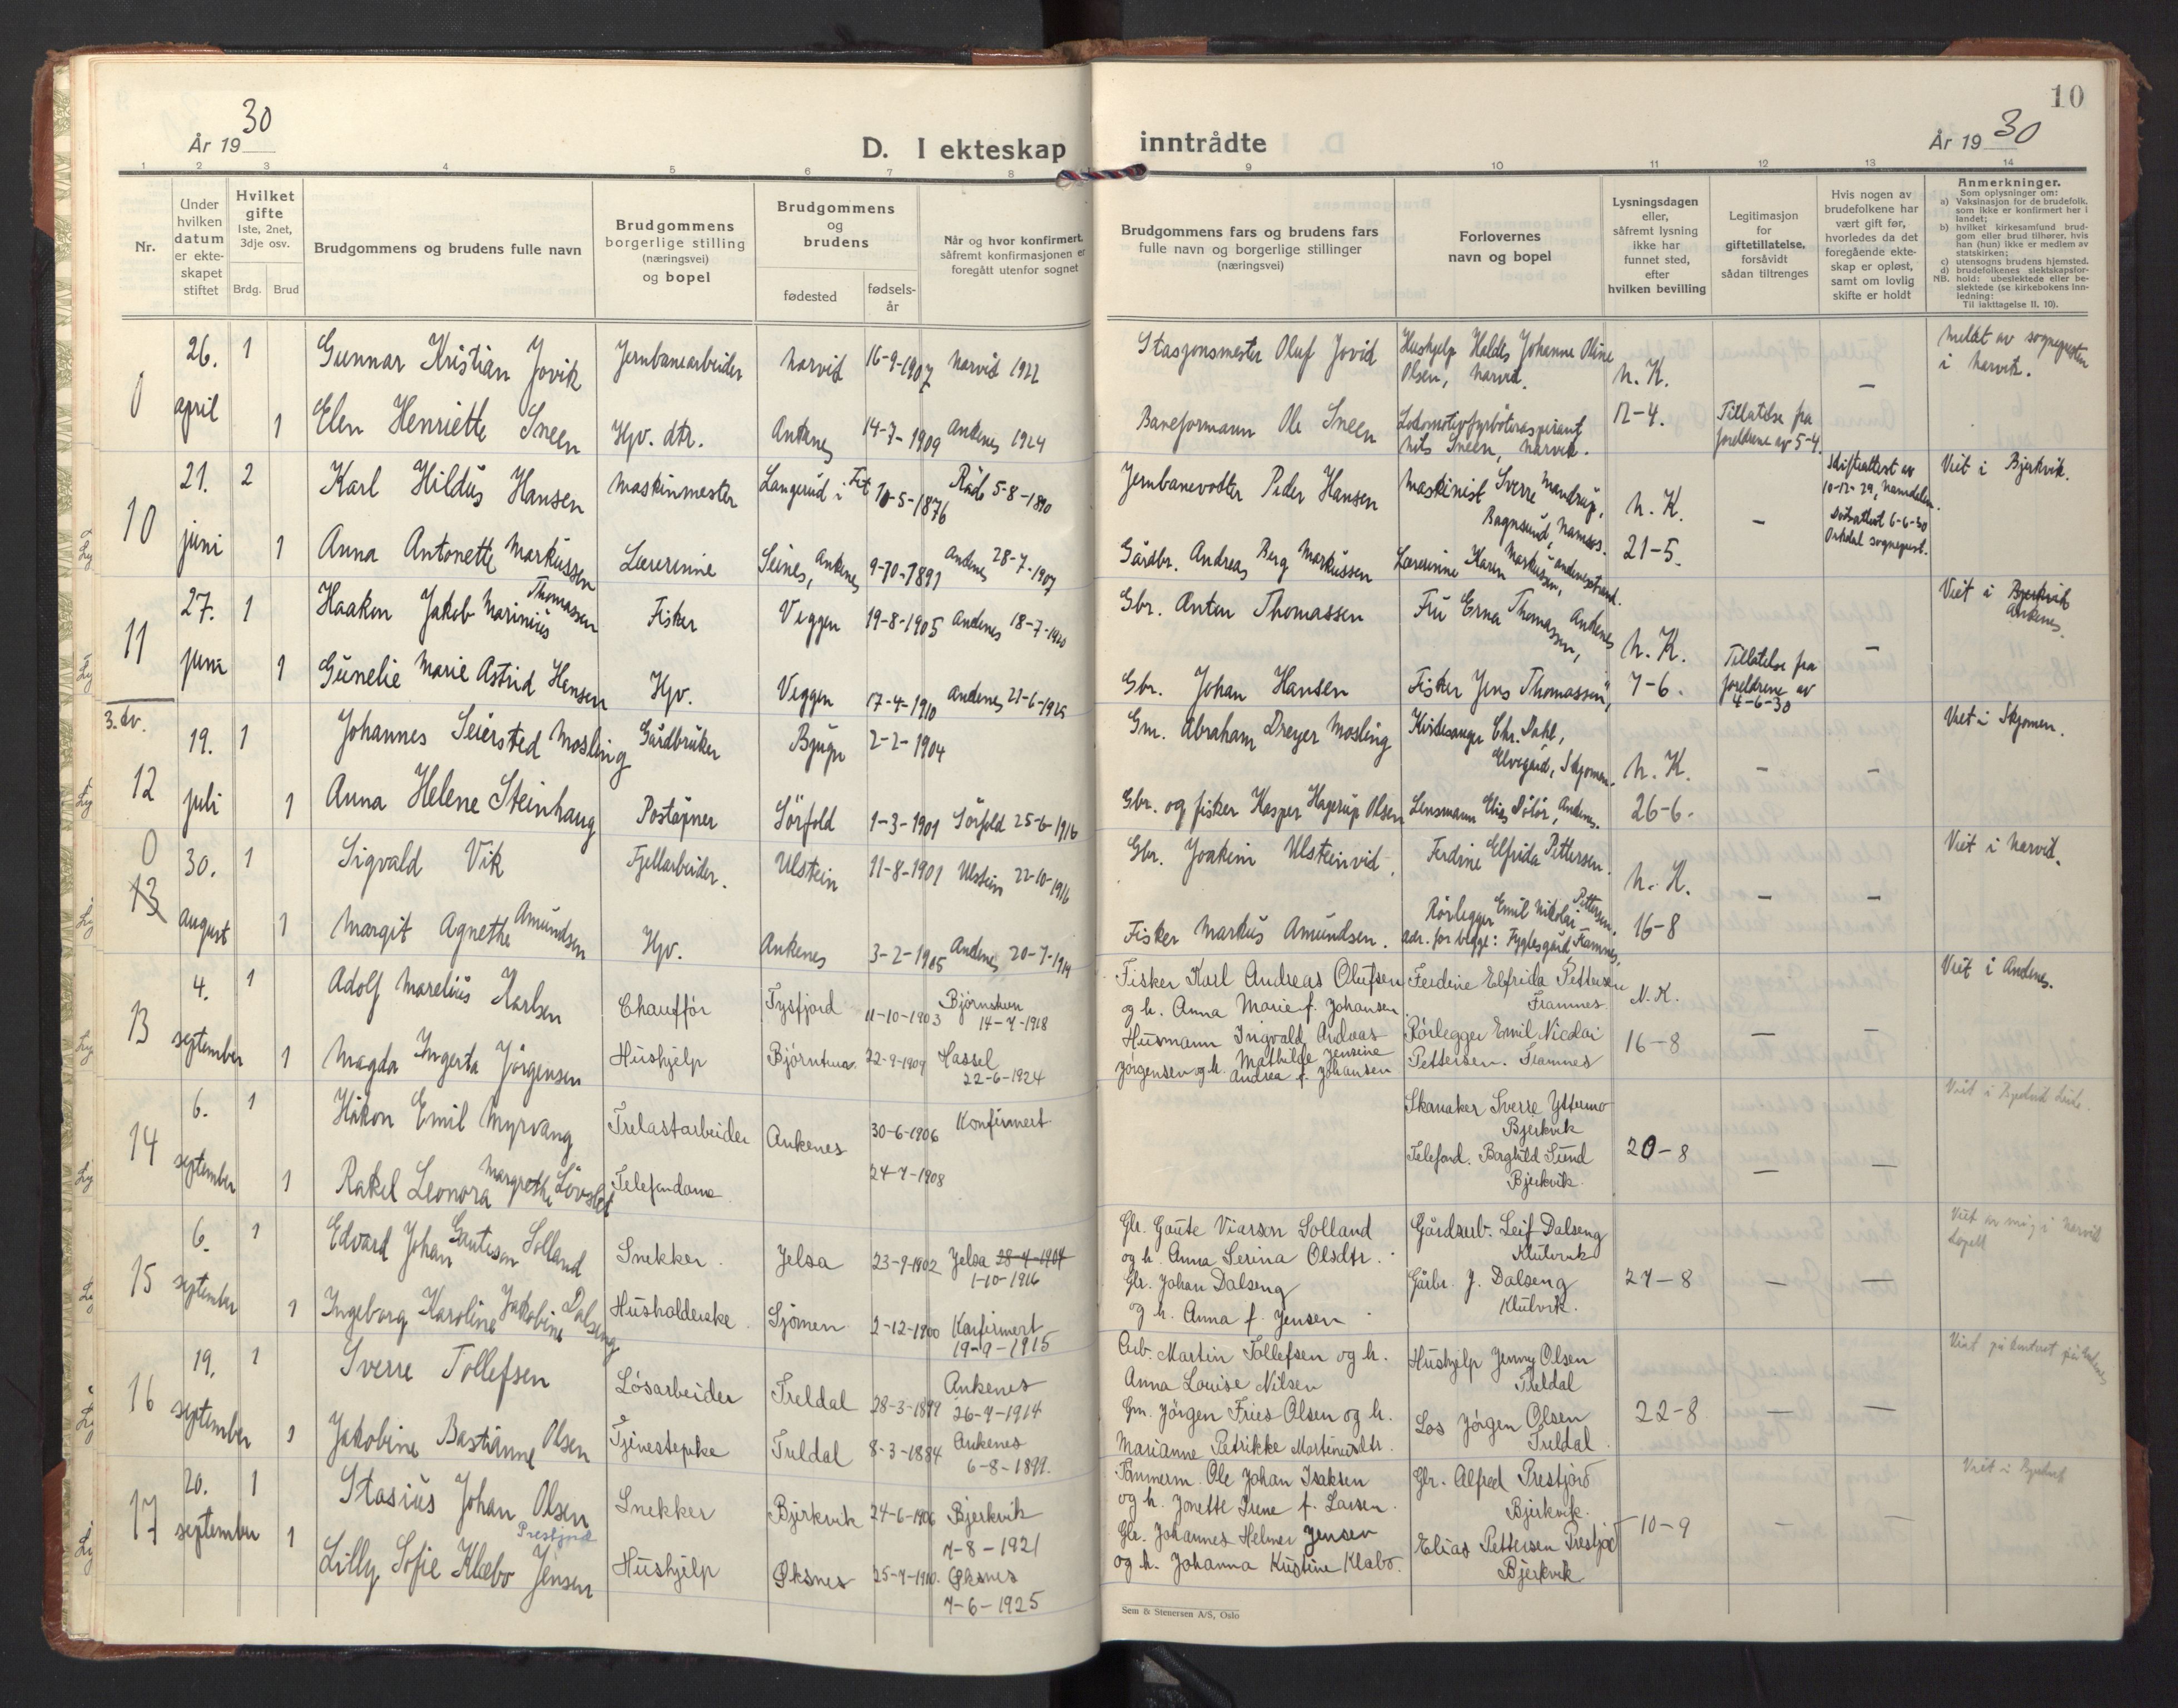 10
År 1930
D. I ekteskap inntrådte
År 1930
1 2 3 4 5 6 7 8 9 10 11 12 13 14
Nr.
Under hvilken datum er ekte-skapet stiftet
Hvilket gifte 1ste, 2net, 3dje osv.
Brdg. Brud
Brudgommens og brudens fulle navn
Brudgommens borgerlige stilling (næringsvei) og bopel
Brudgommens og brudens
fødested
fødsels-år
Når og hvor konfirmert, såfremt konfirmasjonen er foregått utenfor sognet
Brudgommens fars og brudens fars fulle navn og borgerlige stillinger (næringsvei)
Forlovernes navn og bopel
Lysningsdagen eller, såfremt lysning ikke har funnet sted, efter hvilken bevilling
Legitimasjon for giftetillatelse, forsåvidt sådan tiltrenges
Hvis nogen av brudefolkene har vært gift før, hvorledes da det foregående ekte-skap er opløst, samt om lovlig skifte er holdt
Anmerkninger.
Som oplysninger om:
a) Vaksinasjon for de brudefolk, som ikke er konfirmert her i landet;
b) hvilket kirkesamfund brud-gom eller brud tilhører, hvis han (hun) ikke er medlem av statskirken;
c) utensogns brudens hjemsted.
d) brudefolkenes slektskapsfor-hold: ubeslektede eller be-slektede (se kirkebokens Inn-ledning:
NB. Til iakttagelse II. 10).
0 26. april 1 Gunnar Kristian Jovik Jernbanearbeider Narvik 16-9-1907 Narvik 1922 Stasjonsmester Oluf Jovik Hushjelp Haldis Johanne Oline Olsen, Narvik. N.K. — Meldt av sognepresten i Narvik.
1 Elen Henriette Sneen Hjv. dtr. Ankenes 14-7-1909 Ankenes 1924 Baneformann Ole Sneen Lokomotivfyrbøteraspirant Nils Sneen, Narvik. 12-4. Tillatelse fra foreldrene av 5-4
10 21. juni 2 Karl Hildus Hansen Maskinmester Langerud i 10-5-1876 Råde 5-8-1890 Jernbanevokter Peder Hansen Maskinist Sverre Namsos. N.K. — Skifteattest av 10-12-29, Namdalen. Viet i Bjerkvik.
1 Anna Antonette Markussen Lærerinne Seines, Ankenes 9-10-1891 Ankenes 28-7-1907 Gårdbr. Andreas Berg Markussen Lærerinne Karen Markussen, Ankenesstrand. 21-5. 6-6-30 Orkdal sogneprest.
11 27. juni 1 Haakon Jakob Marinius Thomassen Fisker Veggen 19-8-1905 Ankenes 18-7-1920 Gbr. Anton Thomassen Fru Erna Thomassen, Ankenes N.K. — Viet i Bjerkvik Ankenes.
1 Gunelie Marie Astrid Hansen Hjv. Veggen 17-4-1910 Ankenes 21-6-1925 Gbr. Johan Hansen Fisker Jens Thomassen, " 7-6. Tillatelse fra foreldrene av 4-6-30
3. kv.
12 19. juli 1 Johannes Seiersted Mosling Gårdbruker Bjugn 2-2-1904 Gm. Abraham Dreyer Mosling Kirkesanger Chr. Dahl, Elvegård, Skjomen. N.K. — — Viet i Skjomen.
1 Anna Helene Steinhaug Poståpner Sørfold 1-3-1901 Sørfold 25-6-1916 Gbr. og fisker Kasper Hagerup Olsen Lensmann Elias Ankenes. 26-6.
0 13 30. august 1 Sigvald Vik Fjellarbeider. Ulstein 11-8-1901 Ulstein 22-10-1916 Gbr. Joakim Ulsteinvik. Ferdine Elfrida Pettersen. N.K. — — Viet i Narvik.
1 Margit Agnethe Amundsen Hjv. Ankenes 3-2-1905 Ankenes 20-7-1919 Fisker Markus Amundsen. Rørlegger Emil Nikolai Pettersen, adr. for begge: Framnes. 16-8
13 4. september 1 Adolf Marelius Karlsen Chauffør Tysfjord 11-10-1903 Bjørnskinn 14-7-1918 Fisker Karl Andreas Olufsen og h. Anna Marie f. Johansen. Ferdine Elfrida Pettersen Framnes N.K. Viet i Ankenes.
1 Magda Ingerta Jørgensen Hushjelp 22-9-1909 Hassel 22-6-1924 Husmann Ingvald Andreas Jørgensen og h. Mathilde Jensine Andrea f. Johansen Rørlegger Emil Nicolai Pettersen. Framnes 16-8 — —
14 6. september 1 Håkon Emil Myrvang Trelastarbeider Ankenes 30-6-1906 Konfirmert Skomaker Sverre Yttermo Bjerkvik 20-8
1 Rakel Leonora Margrethe Løvslet Telefondame 24-7-1908 Telefond. Borghild Sund Bjerkvik — —
15 6. september 1 Edvard Johan Gautesen Solland Snekker. Jelsa 23-9-1902 Jelsa 28-4-1907 1-10-1916 Gbr. Gaute Viarson Solland og h. Anna Serina Olsdtr. Gårdarb. Leif Dalseng Klubvik Viet av meg i Narvik kapell
1 Ingeborg Karoline Jakobine Dalseng Husholderske Sjomen 2-12-1900 Konfirmert 19-9-1915 Gbr. Johan Dalseng og h. Anna f. Jensen Gårbr. J. Dalseng Klubvik. 27-8 — —
16 19. september 1 Sverre Tollefsen Løsarbeider Treldal 28-3-1899 Ankenes 26-7-1914 Arb. Martin Tollefsen og h. Anna Louise Nilsen Hushjelp Jenny Olsen Treldal 22-8 — — Viet på kontoret på Ankenes
1 Jakobine Bastianne Olsen Tjenestepike Treldal 8-3-1884 Ankenes 6-8-1899. Gm. Jørgen Fries Olsen og h. Marianne Petrikke Martinusdtr. Løs Jørgen Olsen Treldal.
17 20. september 1 Stasius Johan Olsen Prestjord Snekker Bjerkvik 24-6-1906 Bjerkvik 7-8-1921 Tømmerm. Ole Johan Isaksen og h. Jonette Irene f. Larsen. Gbr. Alfred Prestjord Bjerkvik. 10-9 — — Viet i Bjerkvik
1 Lilly Sofie Klæbo Jensen Hushjelp Øksnes 25-7-1910. Øksnes 7-6-1925 Gbr. Johannes Helmer Jensen og h. Johanna Kristine Klæbo. Elias Pettersen Prestjord Bjerkvik
Sem & Stenersen A/S, Oslo